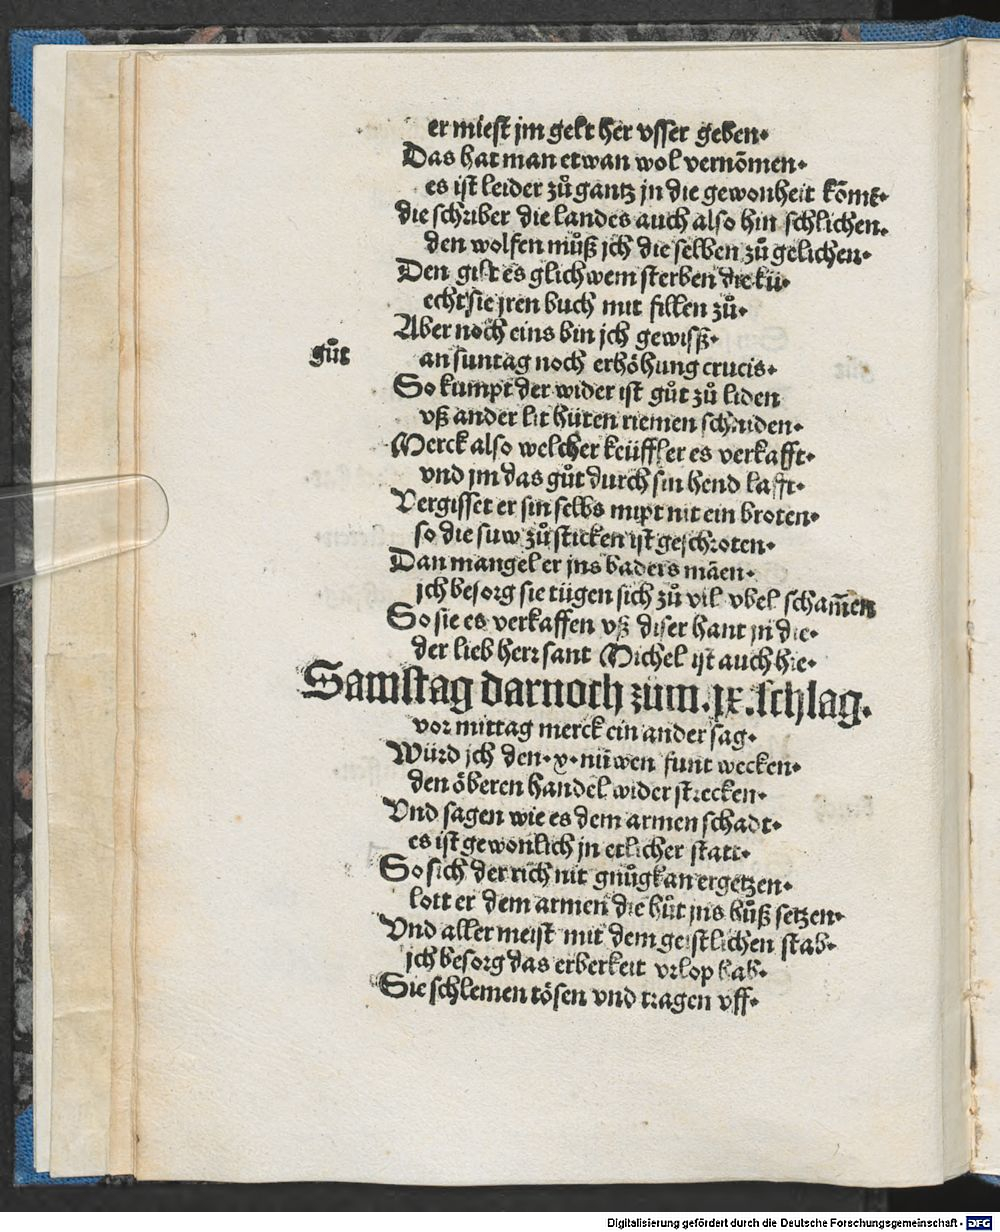 er miest jm gelt her vsser geben.
Das hat man etwan wol vernōmen.
es ist leider zů gantz jn die gewonheit kōmē.
die schriber die landes auch also hin schlichen.
den wolfen můß jch die selben zů gelichen.
Den gist es glich wem sterben die kü.
echt sie jren buch mit fillen zů.
Aber noch eins bin jch gewisß.
gůt
an suntag noch erhöhung crucis.
So kumpt der wider ist gůt zů liden
vß ander lit hüten riemen schniden.
Merck also welcher keüffler es verkafft.
vnd jm das gůt durch sin hend lafft.
Vergisset er sin selbs nupt nit ein broten.
so die suw zů sticken ist geschroten.
Dan mangel er jns baders māen.
jch besorg sie tügen sich zů vil vbel scham̄en
So sie es verkaffen vß diser hant jn die.
der lieb herr sant Michel ist auch hie.
Samstag darnoch zům .ix. schlag.
vor mittag merck ein ander sag.
Würd jch den .x. nüwen funt wecken.
den öberen handel wider strecken.
Vnd sagen wie es dem armen schadt.
es ist gewonlich jn etlicher statt.
So sich der rich nit gnůg kan ergetzen.
lott er dem armen die hüt jns bůß setzen.
Vnd aller meist mit dem geistlichen stab.
jch besorg das erberkeit vrlop hab.
Sie schlemen tösen vnd tragen vff.
Digitalisierung gefördert durch die Deutsche Forschungsgemeinschaft - DFG